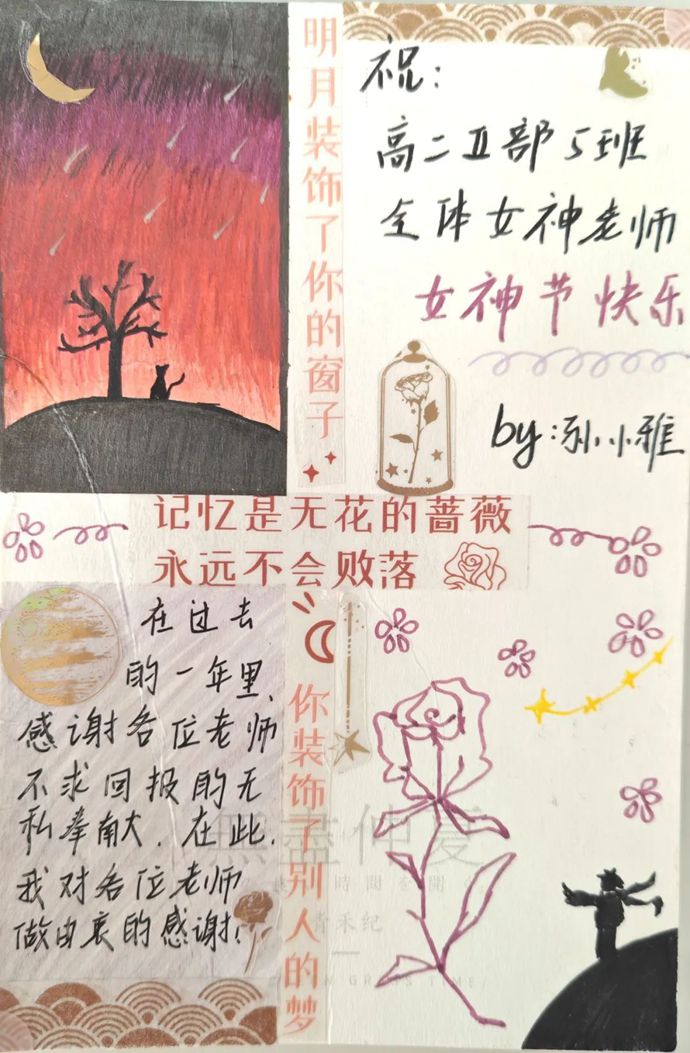 明月装饰了你的窗子
祝：
高二Ⅱ部5班
全体女神老师
女神节快乐
by：孙小雅
记忆是无花的蔷薇
永远不会败落
在过去
的一年里，
感谢各位老师
不求回报的无
私奉献，在此，
我对各位老师
做由衷的感谢！
你装饰了别人的梦
無盡仲夏
時間を開
青禾纪